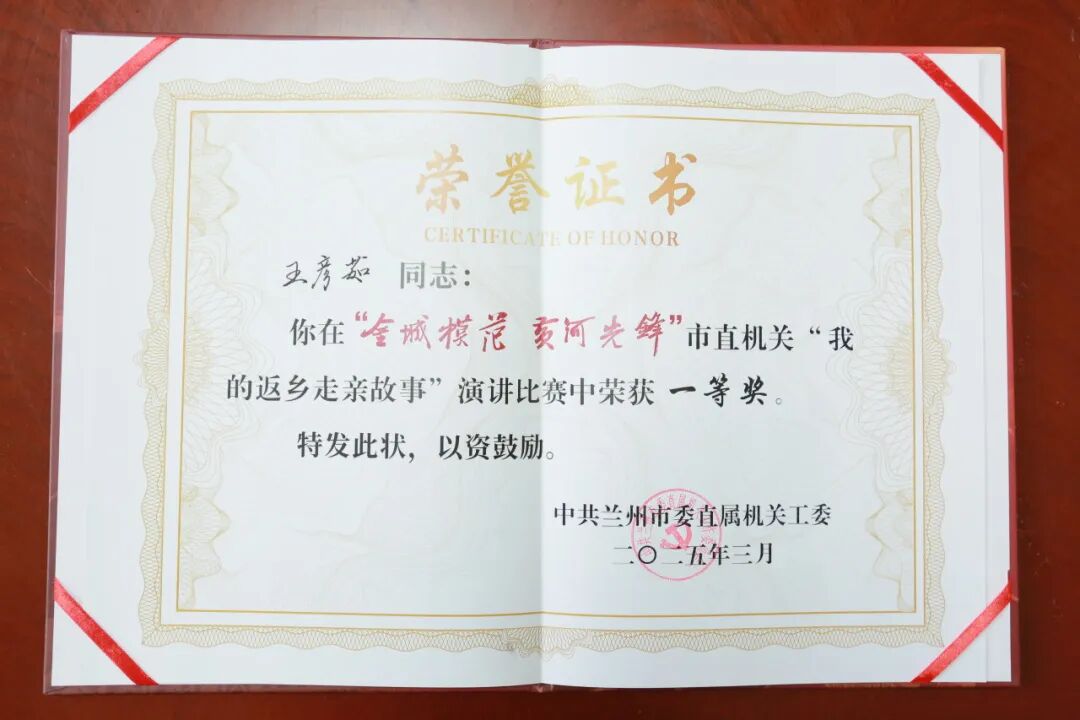 荣誉证书
CERTIFICATE OF HONOR
王彦茹 同志：
你在“金城模范 黄河先锋”市直机关“我
的返乡走亲故事”演讲比赛中荣获 一等奖。
特发此状，以资鼓励。
中共兰州市委直属机关工委
二〇二五年三月